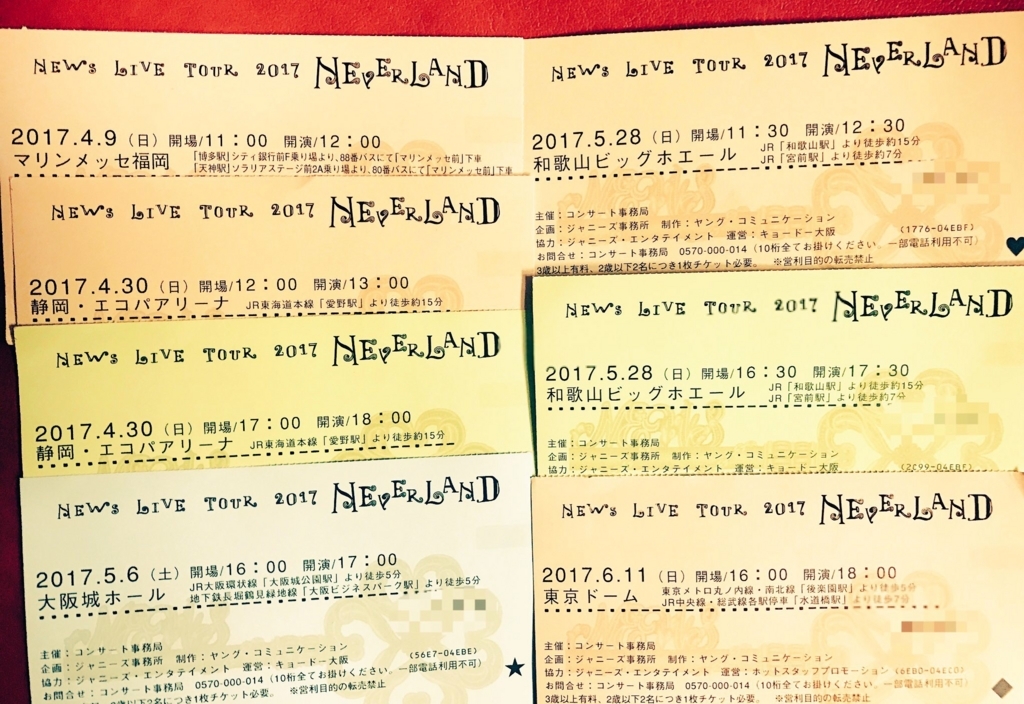 NEWS LIVE TOUR 2017 NEVERLAND
2017.4.9(日)開場/11:00 開演/12:00
マリンメッセ福岡
「博多駅」シティ銀行前F乗り場より、88番バスにて「マリンメッセ前」下車
「天神駅」ソラリアステージ前2A乗り場より、80番バスにて「マリンメッセ前」下車
NEWS LIVE TOUR 2017 NEVERLAND
2017.4.30(日)開場/12:00 開演/13:00
静岡・エコパアリーナ JR東海道本線「愛野駅」より徒歩約15分
NEWS LIVE TOUR 2017 NEVERLAND
2017.4.30(日)開場/17:00 開演/18:00
静岡・エコパアリーナ JR東海道本線「愛野駅」より徒歩約15分
NEWS LIVE TOUR 2017 NEVERLAND
2017.5.6(土)開場/16:00 開演/17:00
大阪城ホール
JR大阪環状線「大阪城公園駅」より徒歩5分
地下鉄長堀鶴見緑地線「大阪ビジネスパーク駅」より徒歩5分
主催:コンサート事務局
企画:ジャニーズ事務所 制作:ヤング・コミュニケーション
協力:ジャニーズ・エンタテイメント 運営:キョードー大阪 (56E7-04EBE)
お問合せ:コンサート事務局 0570-000-014(10桁全てお掛けください。一部電話利用不可)
3歳以上有料、2歳以下2名につき1枚チケット必要。 ※営利目的の転売禁止
NEWS LIVE TOUR 2017 NEVERLAND
2017.5.28(日)開場/11:30 開演/12:30
和歌山ビッグホエール
JR「和歌山駅」より徒歩約15分
JR「宮前駅」より徒歩約7分
主催:コンサート事務局
企画:ジャニーズ事務所 制作:ヤング・コミュニケーション
協力:ジャニーズ・エンタテイメント 運営:キョードー大阪 (1776-04EBF)
お問合せ:コンサート事務局 0570-000-014(10桁全てお掛けください。一部電話利用不可)
3歳以上有料、2歳以下2名につき1枚チケット必要。 ※営利目的の転売禁止
NEWS LIVE TOUR 2017 NEVERLAND
2017.5.28(日)開場/16:30 開演/17:30
和歌山ビッグホエール
JR「和歌山駅」より徒歩約15分
JR「宮前駅」より徒歩約7分
主催:コンサート事務局
企画:ジャニーズ事務所 制作:ヤング・コミュニケーション
協力:ジャニーズ・エンタテイメント 運営:キョードー大阪 (2E99-04EBF)
NEWS LIVE TOUR 2017 NEVERLAND
2017.6.11(日)開場/16:00 開演/18:00
東京ドーム
東京メトロ丸ノ内線・南北線「後楽園駅」より徒歩5分
JR中央線・総武線各駅停車「水道橋駅」より徒歩7分
主催:コンサート事務局
企画:ジャニーズ事務所 制作:ヤング・コミュニケーション
協力:ジャニーズ・エンタテイメント 運営:ホットスタッフプロモーション
お問合せ:コンサート事務局 0570-000-014(10桁全てお掛けください。一部電話利用不可)
3歳以上有料、2歳以下2名につき1枚チケット必要。 ※営利目的の転売禁止